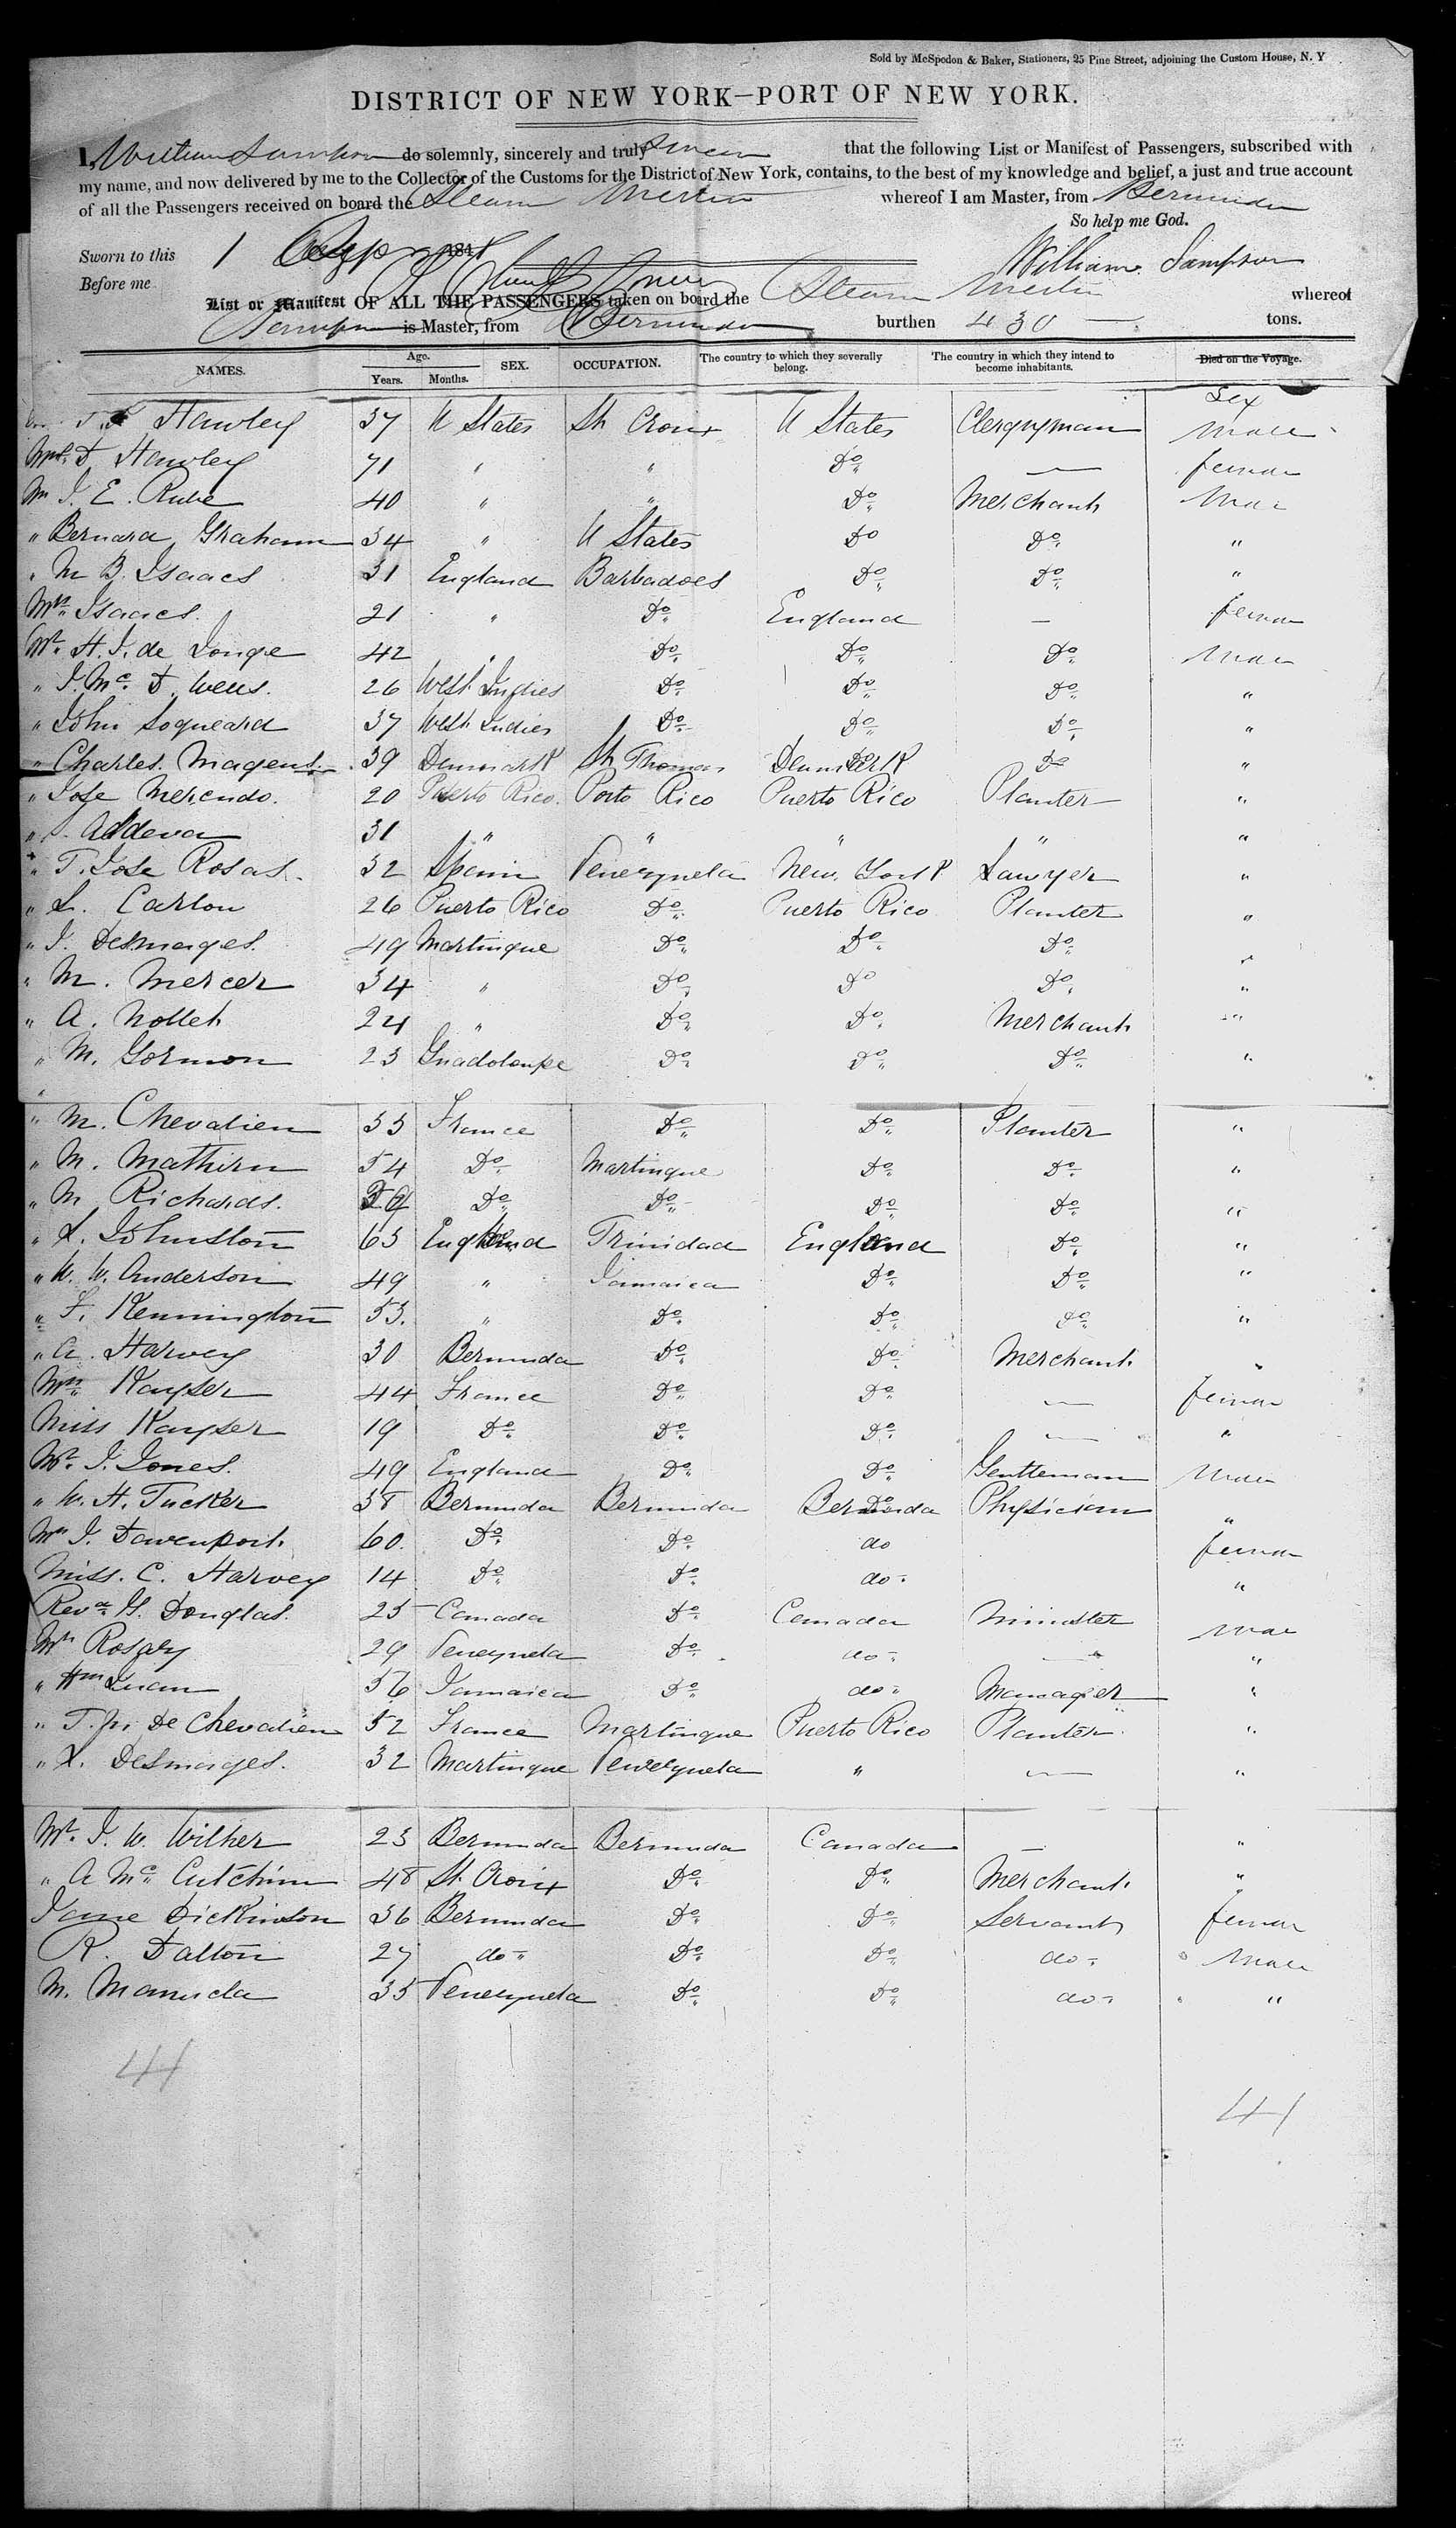 Sold by McSpedon & Baker, Stationers, 25 Pine Street, adjoining the Custom House, N. Y
DISTRICT OF NEW YORK—PORT OF NEW YORK.
I, William Sampson do solemnly, sincerely and truly Swear that the following List or Manifest of Passengers, subscribed with
my name, and now delivered by me to the Collector of the Customs for the District of New York, contains, to the best of my knowledge and belief, a just and true account
of all the Passengers received on board the Steam Merlin whereof I am Master, from Bermuda
So help me God.
Sworn to this 1 184
William Sampson
Before me
List or Manifest OF ALL THE PASSENGERS taken on board the Steam Merlin whereof
Sampson is Master, from Bermuda burthen 430 — tons.
NAMES. Age. Years. Months. SEX. OCCUPATION. The country to which they severally belong. The country in which they intend to become inhabitants. Died on the Voyage.
Sex
Hawley 37 U States St Croix U States Clergyman Male
Mrs. D Hawley 71 " " Do — female
Mr J. E. Rube 40 " " Do Merchant Male
" Bernard Graham 34 " U States Do Do "
" M B. Isaacs 31 England Barbadoes Do Do "
Mrs Isaacs. 21 " Do England — female
Mr. H. J. de Jonge 42 " Do Do Do Male
" J. Mc. D. Wells. 26 West Indies Do Do Do "
" John 37 West Indies Do Do Do "
" Charles Magens. 39 Denmark St Thomas Denmark Do "
" Jose Mercudo. 20 Puerto Rico. Porto Rico Puerto Rico Planter "
" 31 " " " " "
" T. Jose Rosas. 32 Spain Venezuela New York Lawyer "
" L. Carlon 26 Puerto Rico Do Puerto Rico Planter "
" J. Desmages. 49 Martinque Do Do Do "
" M. Mercer 34 " Do Do Do "
" A. Nollet 24 " Do Do Merchant "
" M. Gormon 23 Guadoloupe Do Do Do "
" M. Chevalien 33 France Do Do Planter "
" M. Mathirn 54 Do Martinque Do Do "
" M Richards. Do Do Do Do "
" L. Johnston 63 England Trinidad England Do "
" W. W. Anderson 49 " Jamaica Do Do "
" F. Kennington 53. " Do Do Do "
" A. Harvey 30 Bermuda Do Do Merchant "
Mrs Kayser 44 France Do Do — female
Miss Kayser 19 Do Do Do — "
Mr. J. Jones. 49 England Do Do Gentleman Male
" W. H. Tucker 38 Bermuda Bermuda Bermuda Physician "
Mrs J. Davenport. 60. Do Do do female
Miss. C. Harvey 14 Do Do do "
Revd G. Douglas. 25 Canada Do Canada Minister Male
Mr 29 Venezuela Do do — "
" 56 Jamaica Do do Manager "
" De Chevalien 52 France Martinque Puerto Rico Planter "
" L. Desmages. 32 Martinque Venezuela " — "
Mr. J. W. Wilher 23 Bermuda Bermuda Canada — "
" A Mc Cutchin 48 St. Croix Do Do Merchant. "
Jane Dickinson 36 Bermuda Do Do Servant female
R. Dalton 27 do Do Do do Male
M. Manucla 35 Venezuela Do Do do "
41
41